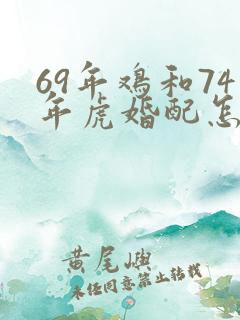 69年鸡和74
年虎婚配怎
黄尾嶼
未经同意禁止转载